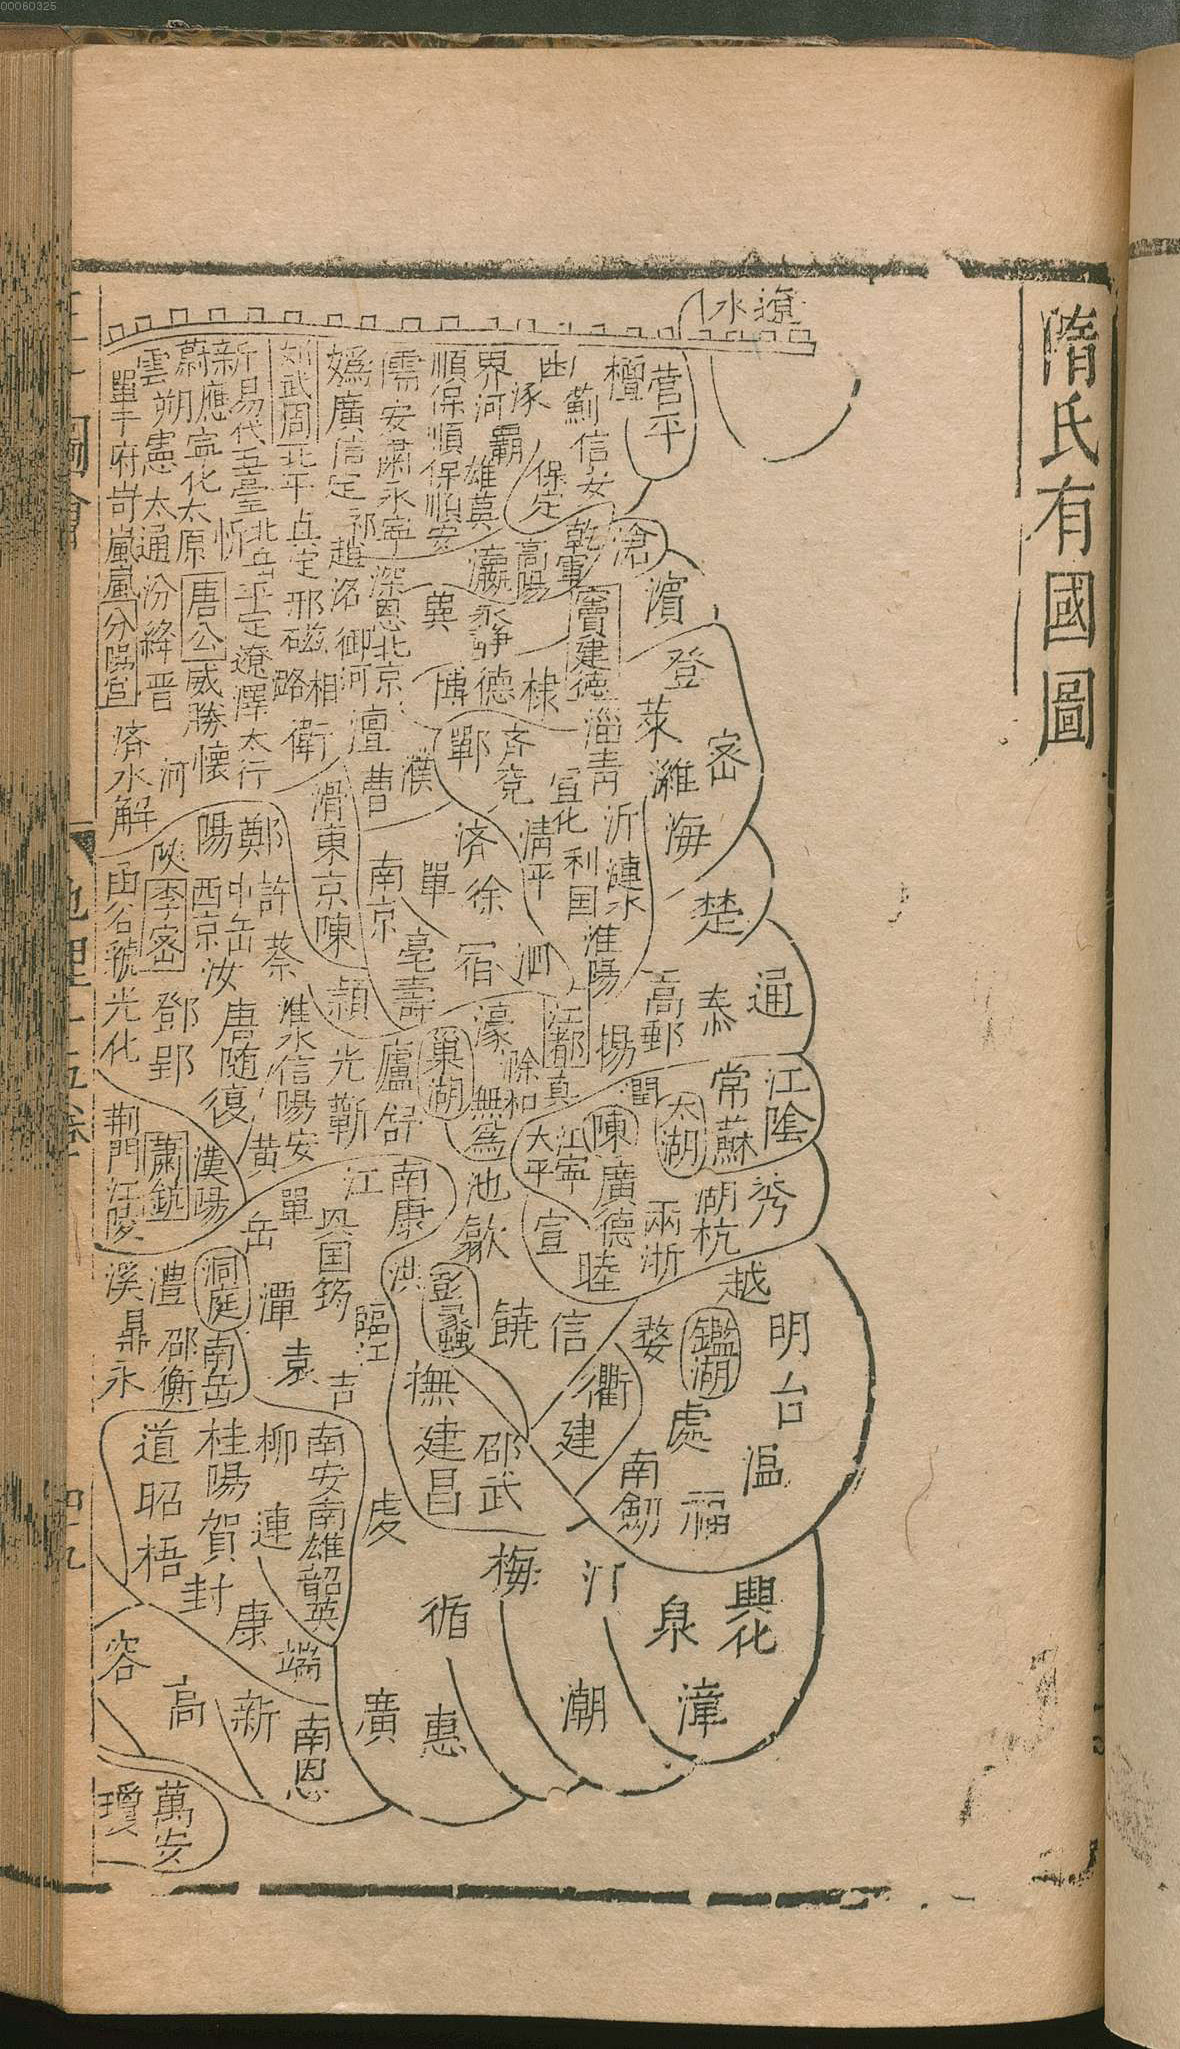 00060325
隋氏有國圖
遼水
營平
檀
薊信安
幽
涿
保定
界河
霸
雄莫
順保順保順安
儒
安肅永寧
媯廣信定
祁
劉武周
北平
真定
新易代五臺
北岳平定遼澤太行
忻
蔚應
化太原
雲朔憲太通汾絳晉
單于府岢嵐嵐
唐公
威勝懷
濟水解
河
邢磁路
相
衛
趙洛御河
深恩北京
澶
曹
濮
冀
瀛永靜德
高陽
乾寧
滄
濱
竇建德
棣
博
鄆
齊兗
淄青
登
萊
濰
密
海
沂漣水
宣化
利国
淮陽
清平
濟徐
單
南京
亳壽
宿
泗
滑東京陳
潁
鄭
陽
許蔡
中岳
西京汝
陝
李密
虢光化
鄧郢
唐随復
淮水信陽安
黃
光蘄
廬舒
巢湖
濠
滁和
無為
江都
真
揚
高郵
泰
通
楚
江陰
常蘇
太湖
潤
陳
江寧
太平
廣德
宣
睦
兩浙
湖杭
秀
池歙
南康
江
興国筠
單
岳
荊門江陵
蕭銑
漢陽
溪鼎永
澧
洞庭
潭
邵衡
南岳
袁
臨江
吉
洪
彭蠡
饒
信
撫
建昌
邵武
衢
建
婺
越
鑑湖
明台
溫
處
南劒
福
興化
泉
漳
汀
潮
梅
循
惠
廣
虔
南安南雄韶英
柳
連
桂陽賀
道昭梧
封
康
端
南恩
新
高
容
萬安
瓊
地理十五卷
四九